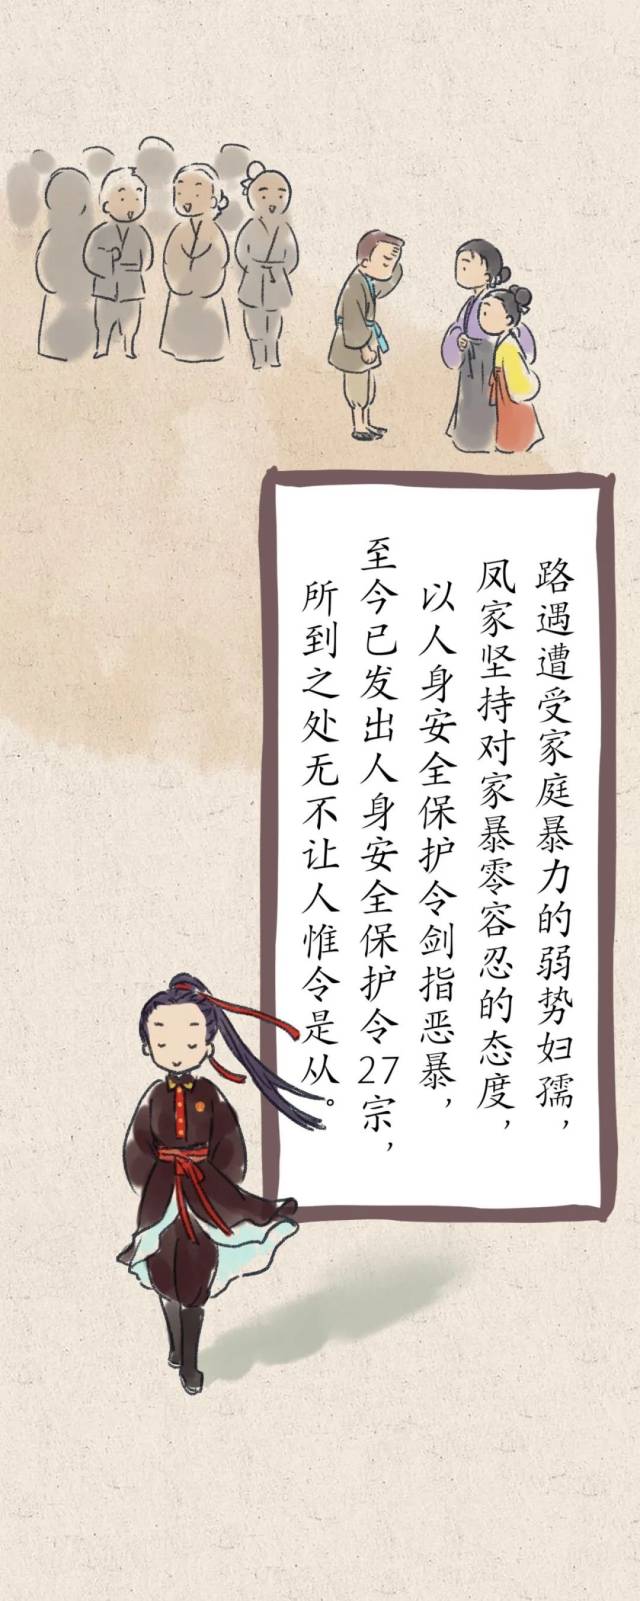 路遇遭受家庭暴力的弱势妇孺，
凤家坚持对家暴零容忍的态度，
以人身安全保护令剑指恶暴，
至今已发出人身安全保护令27宗，
所到之处无不让人惟令是从。